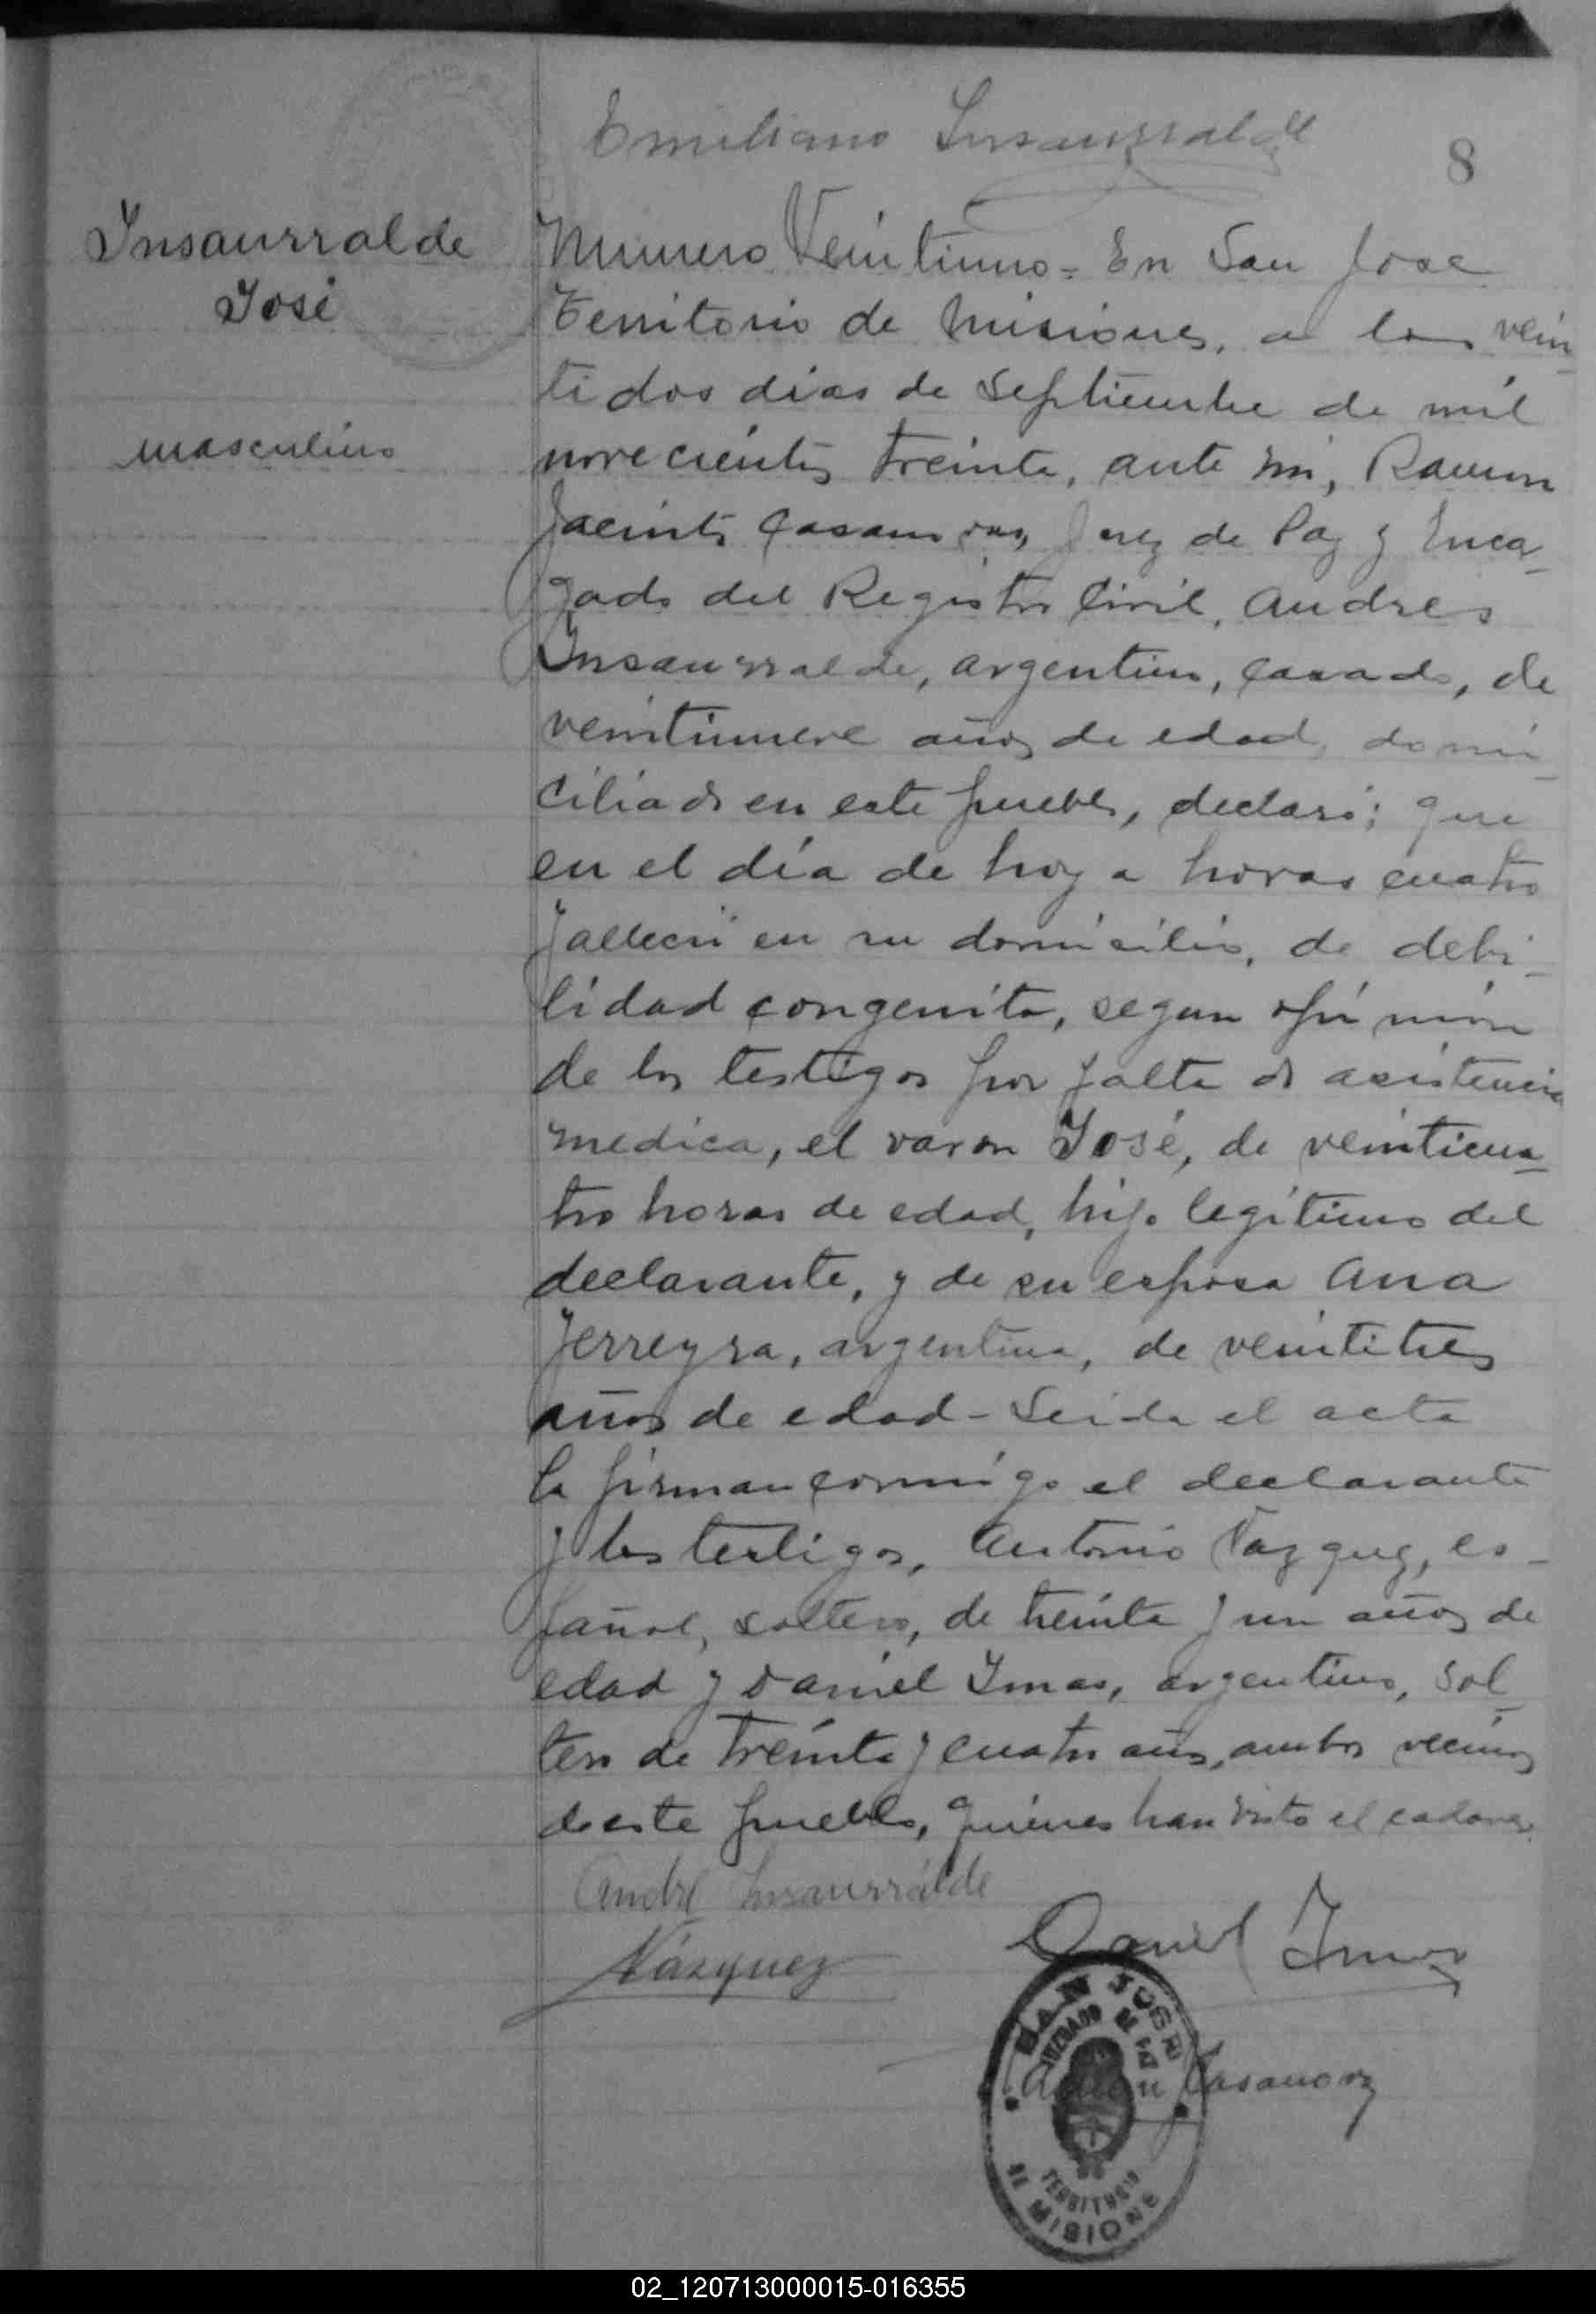 Emiliano Insaurralde
8
Insaurralde
José
masculino
Numero Veintiuno = En San Jose
Territorio de Misiones, a los vein
tidos dias de Septiembre de mil
novecientos treinta, ante mi, Ramon
Jacinto Casanovas, Juez de Paz y Encar
gado del Registro Civil, Andres
Insaurralde, argentino, casado, de
veintinueve años de edad, domi
ciliado en este pueblo, declaró; que
en el día de hoy a horas cuatro
falleció en su domicilio, de debi
lidad congenita, segun opinión
de los testigos por falta de asistencia
medica, el varon José, de veinticua
tro horas de edad, hijo legitimo del
declarante, y de su esposa Ana
Ferreyra, argentina, de veintitres
años de edad - Leida el acta
la firman conmigo el declarante
y los testigos, Antonio Vazquez, es-
pañol, soltero, de treinta y un años de
edad y Daniel Imas, argentino, sol
tero de treinta y cuatro años, ambos vecinos
de este pueblo, quienes han visto el cadaver
André Insaurralde
Vázquez
Daniel Imas
Casanova
SAN JOSE
JUZGADO DE PAZ
TERRITORIO
DE MISIONES
02_120713000015-016355